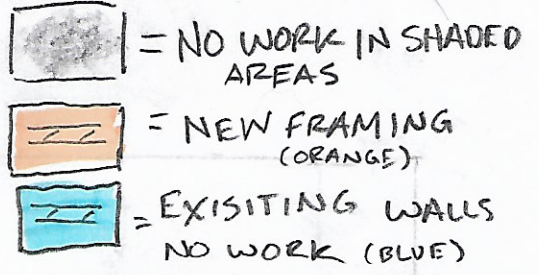 = NO WORK IN SHADED
AREAS
= NEW FRAMING
(ORANGE)
= EXISITING WALLS
NO WORK (BLUE)